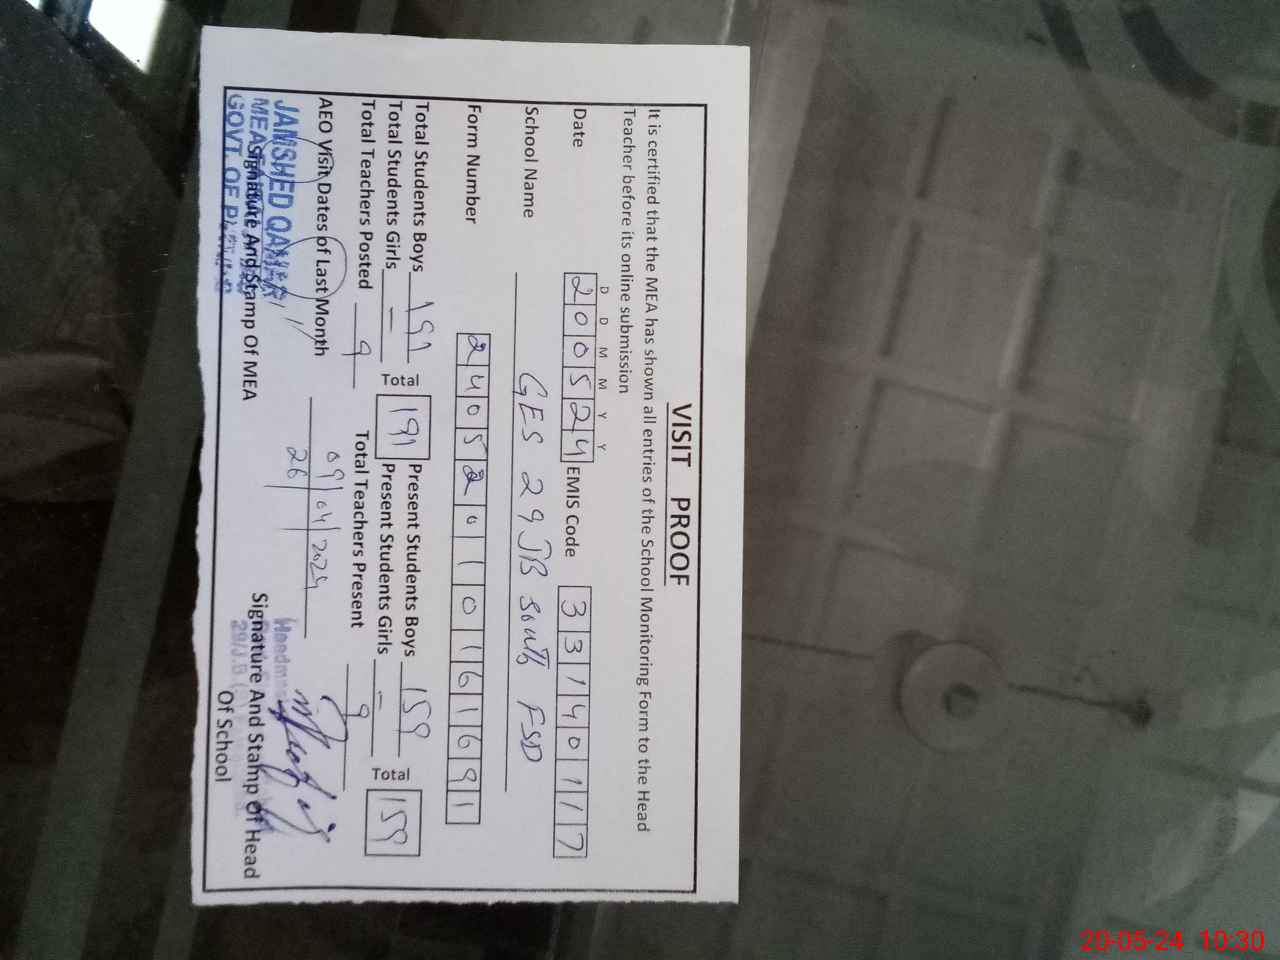 VISIT PROOF
It is certified that the MEA has shown all entries of the School Monitoring Form to the Head
Teacher before its online submission
D D M M Y Y
Date 200524 EMIS Code 33140117
School Name GES 29 JB South FSD
Form Number 240520110161691
Total Students Boys 191 Total 191 Present Students Boys 159 Total 159
Total Students Girls — Present Students Girls —
Total Teachers Posted 9 Total Teachers Present 9
AEO Visit Dates of Last Month 09/04/2024
26
JAMSHED QAMAR
MEA
GOVT. OF
Signature And Stamp Of MEA
Signature And Stamp Of Head
Of School
20-05-24 10:30